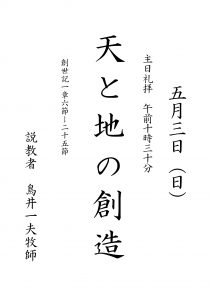 五月三日（日）
主日礼拝　午前十時三十分
天と地の創造
創世記一章六節ー二十五節
説教者　鳥井一夫牧師